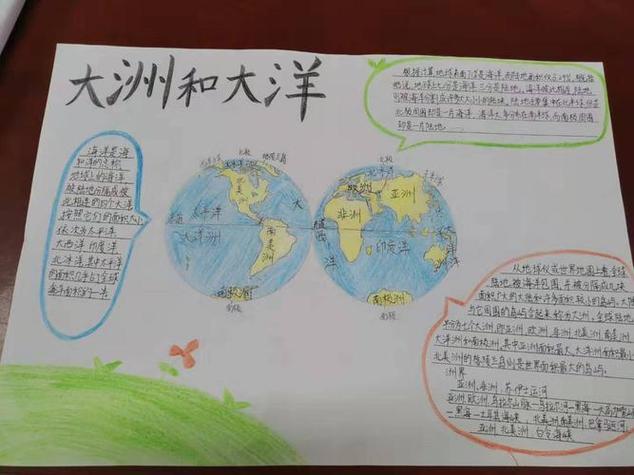 大洲和大洋
海洋是海
和洋的总称
地球上的海洋,
被陆地分隔成彼
此相连的四个大洋
按照它们的面积大小
依次为太平洋、
大西洋 印度洋
北冰洋 其中太平洋
的面积几乎占全球
海洋面积的一半
根据计算,地球表面71%是海洋,而陆地面积仅占29%,概括
地说,地球上七分是海洋,三分是陆地。
北美洲
太平洋
大洋洲
南美洲
南极洲
南极
北极
欧洲
亚洲
非洲
印度洋
大洋洲
南极洲
南极
从地球仪或世界地图上看,全球
陆地被海洋包围,并被分隔成几块
面积广大的大陆和许多面积较小的岛屿,大陆
与它周围的岛屿合起来称为大洲,全球陆地
共分为七个大洲,即亚洲、欧洲、非洲、北美洲、南美洲
大洋洲和南极洲,其中亚洲面积最大,大洋洲面积最小
北美洲的格陵兰岛则是世界面积最大的岛屿。
洲界
亚洲,非洲 苏伊士运河
亚洲,欧洲 乌拉尔山脉—乌拉尔河—里海—大高加索山
—黑海—土耳其海峡 北美洲南美洲,巴拿马运河,
亚洲 北美洲 白令海峡